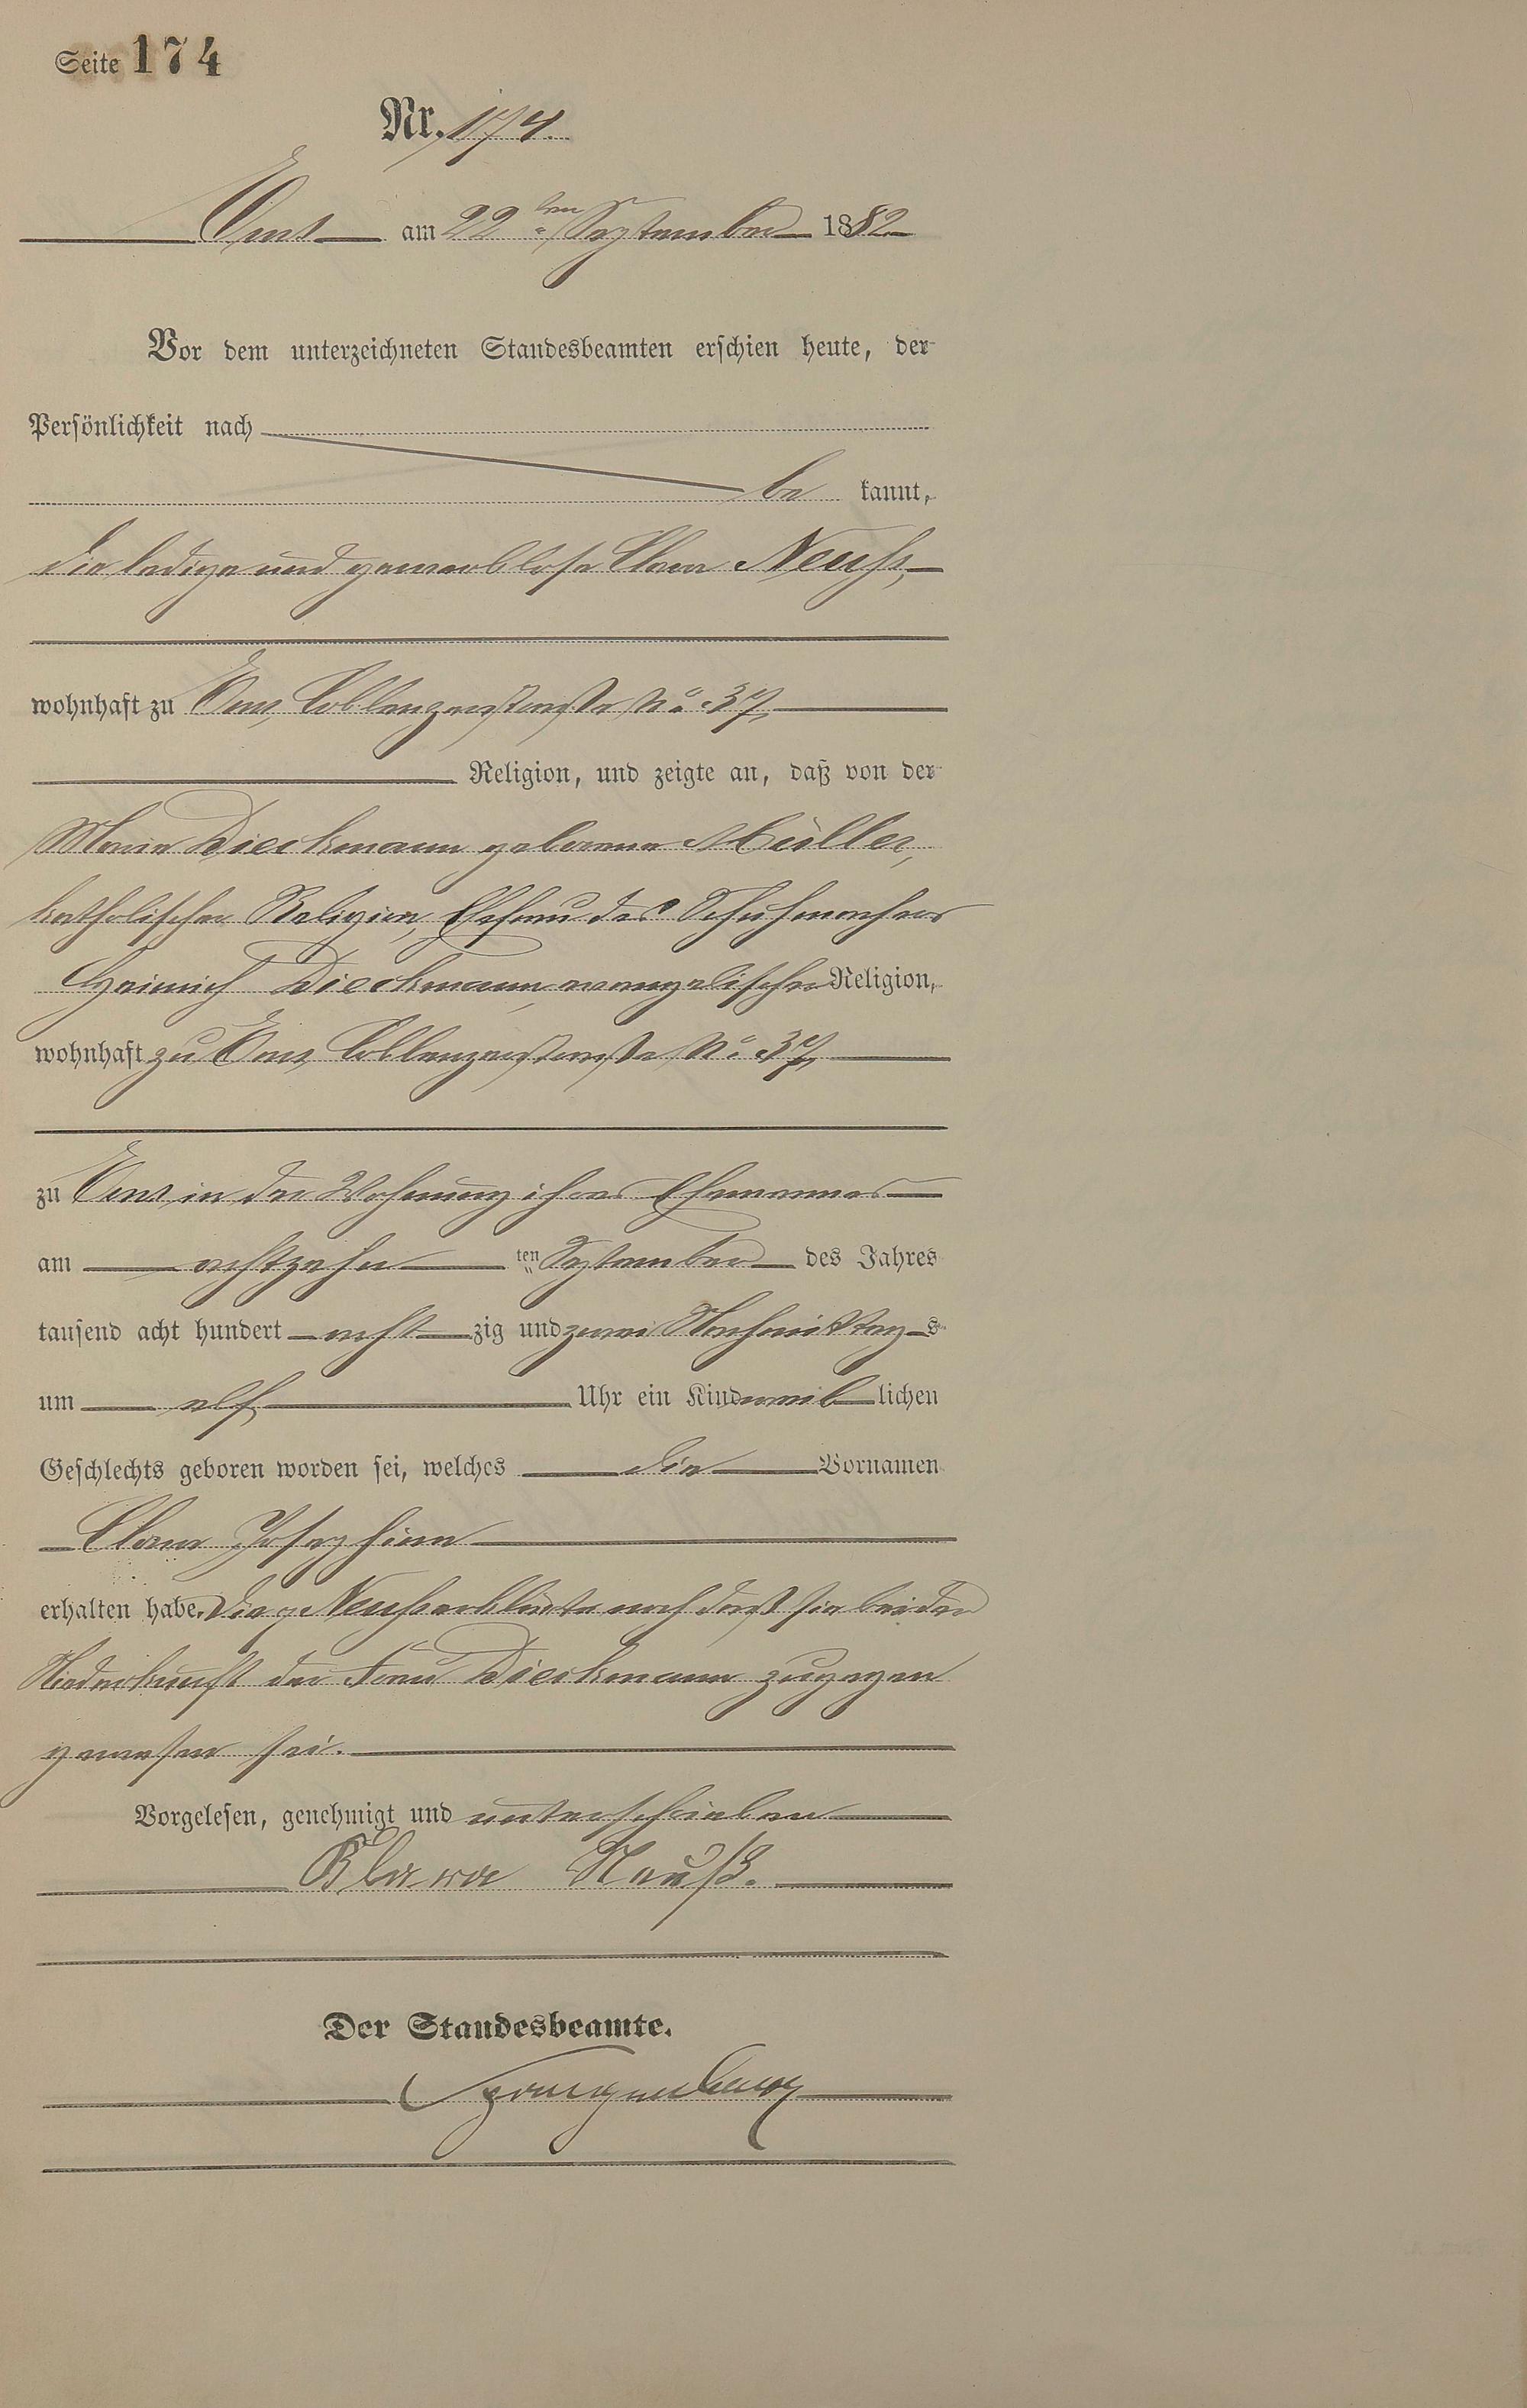 Seite 174
Nr. 174.
Ems am 22ten September 1882
Vor dem unterzeichneten Standesbeamten erschien heute, der
Persönlichkeit nach
be kannt,
die ledige und gewerblose Clara Neuhs,
wohnhaft zu Ems, Coblenzerstraße No. 37,
Religion, und zeigte an, daß von der
Maria Dieckmann geborene Müller,
katholischer Religion, Ehefrau des Schuhmachers
Heinrich Dieckmann, evangelischer Religion,
wohnhaft zu Ems, Coblenzerstraße No. 37,
zu Ems in der Wohnung ihres Ehemannes
am achtzehn ten September des Jahres
tausend acht hundert acht zig und zwei Nachmittag s
um elf Uhr ein Kind weib lichen
Geschlechts geboren worden sei, welches die Vornamen
Clara Josephine
erhalten habe. Die g. Neuhs erklärte noch daß sie bei der
Niederkunft der Frau Dieckmann zugegen
gewesen sei.
Vorgelesen, genehmigt und unterschrieben
Klara Neuß.
Der Standesbeamte.